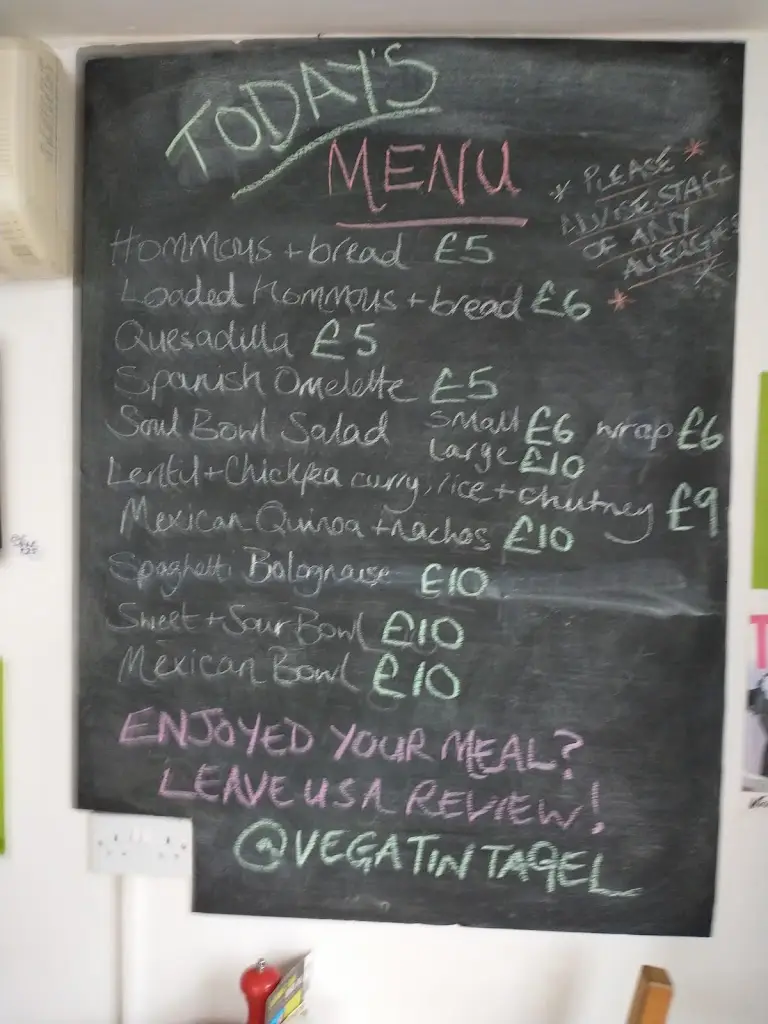 TODAY'S
MENU
* PLEASE *
ADVISE STAFF
OF ANY
ALLERGIES
*
Hommous + bread £5
Loaded Hommous + bread £6 *
Quesadilla £5
Spanish Omelette £5
Soul Bowl Salad small £6 wrap £6
large £10
Lentil + Chickpea curry, rice + chutney £9
Mexican Quinoa + nachos £10
Spaghetti Bolognaise £10
Sweet + Sour Bowl £10
Mexican Bowl £10
ENJOYED YOUR MEAL?
LEAVE US A REVIEW!
@VEGATINTAGEL